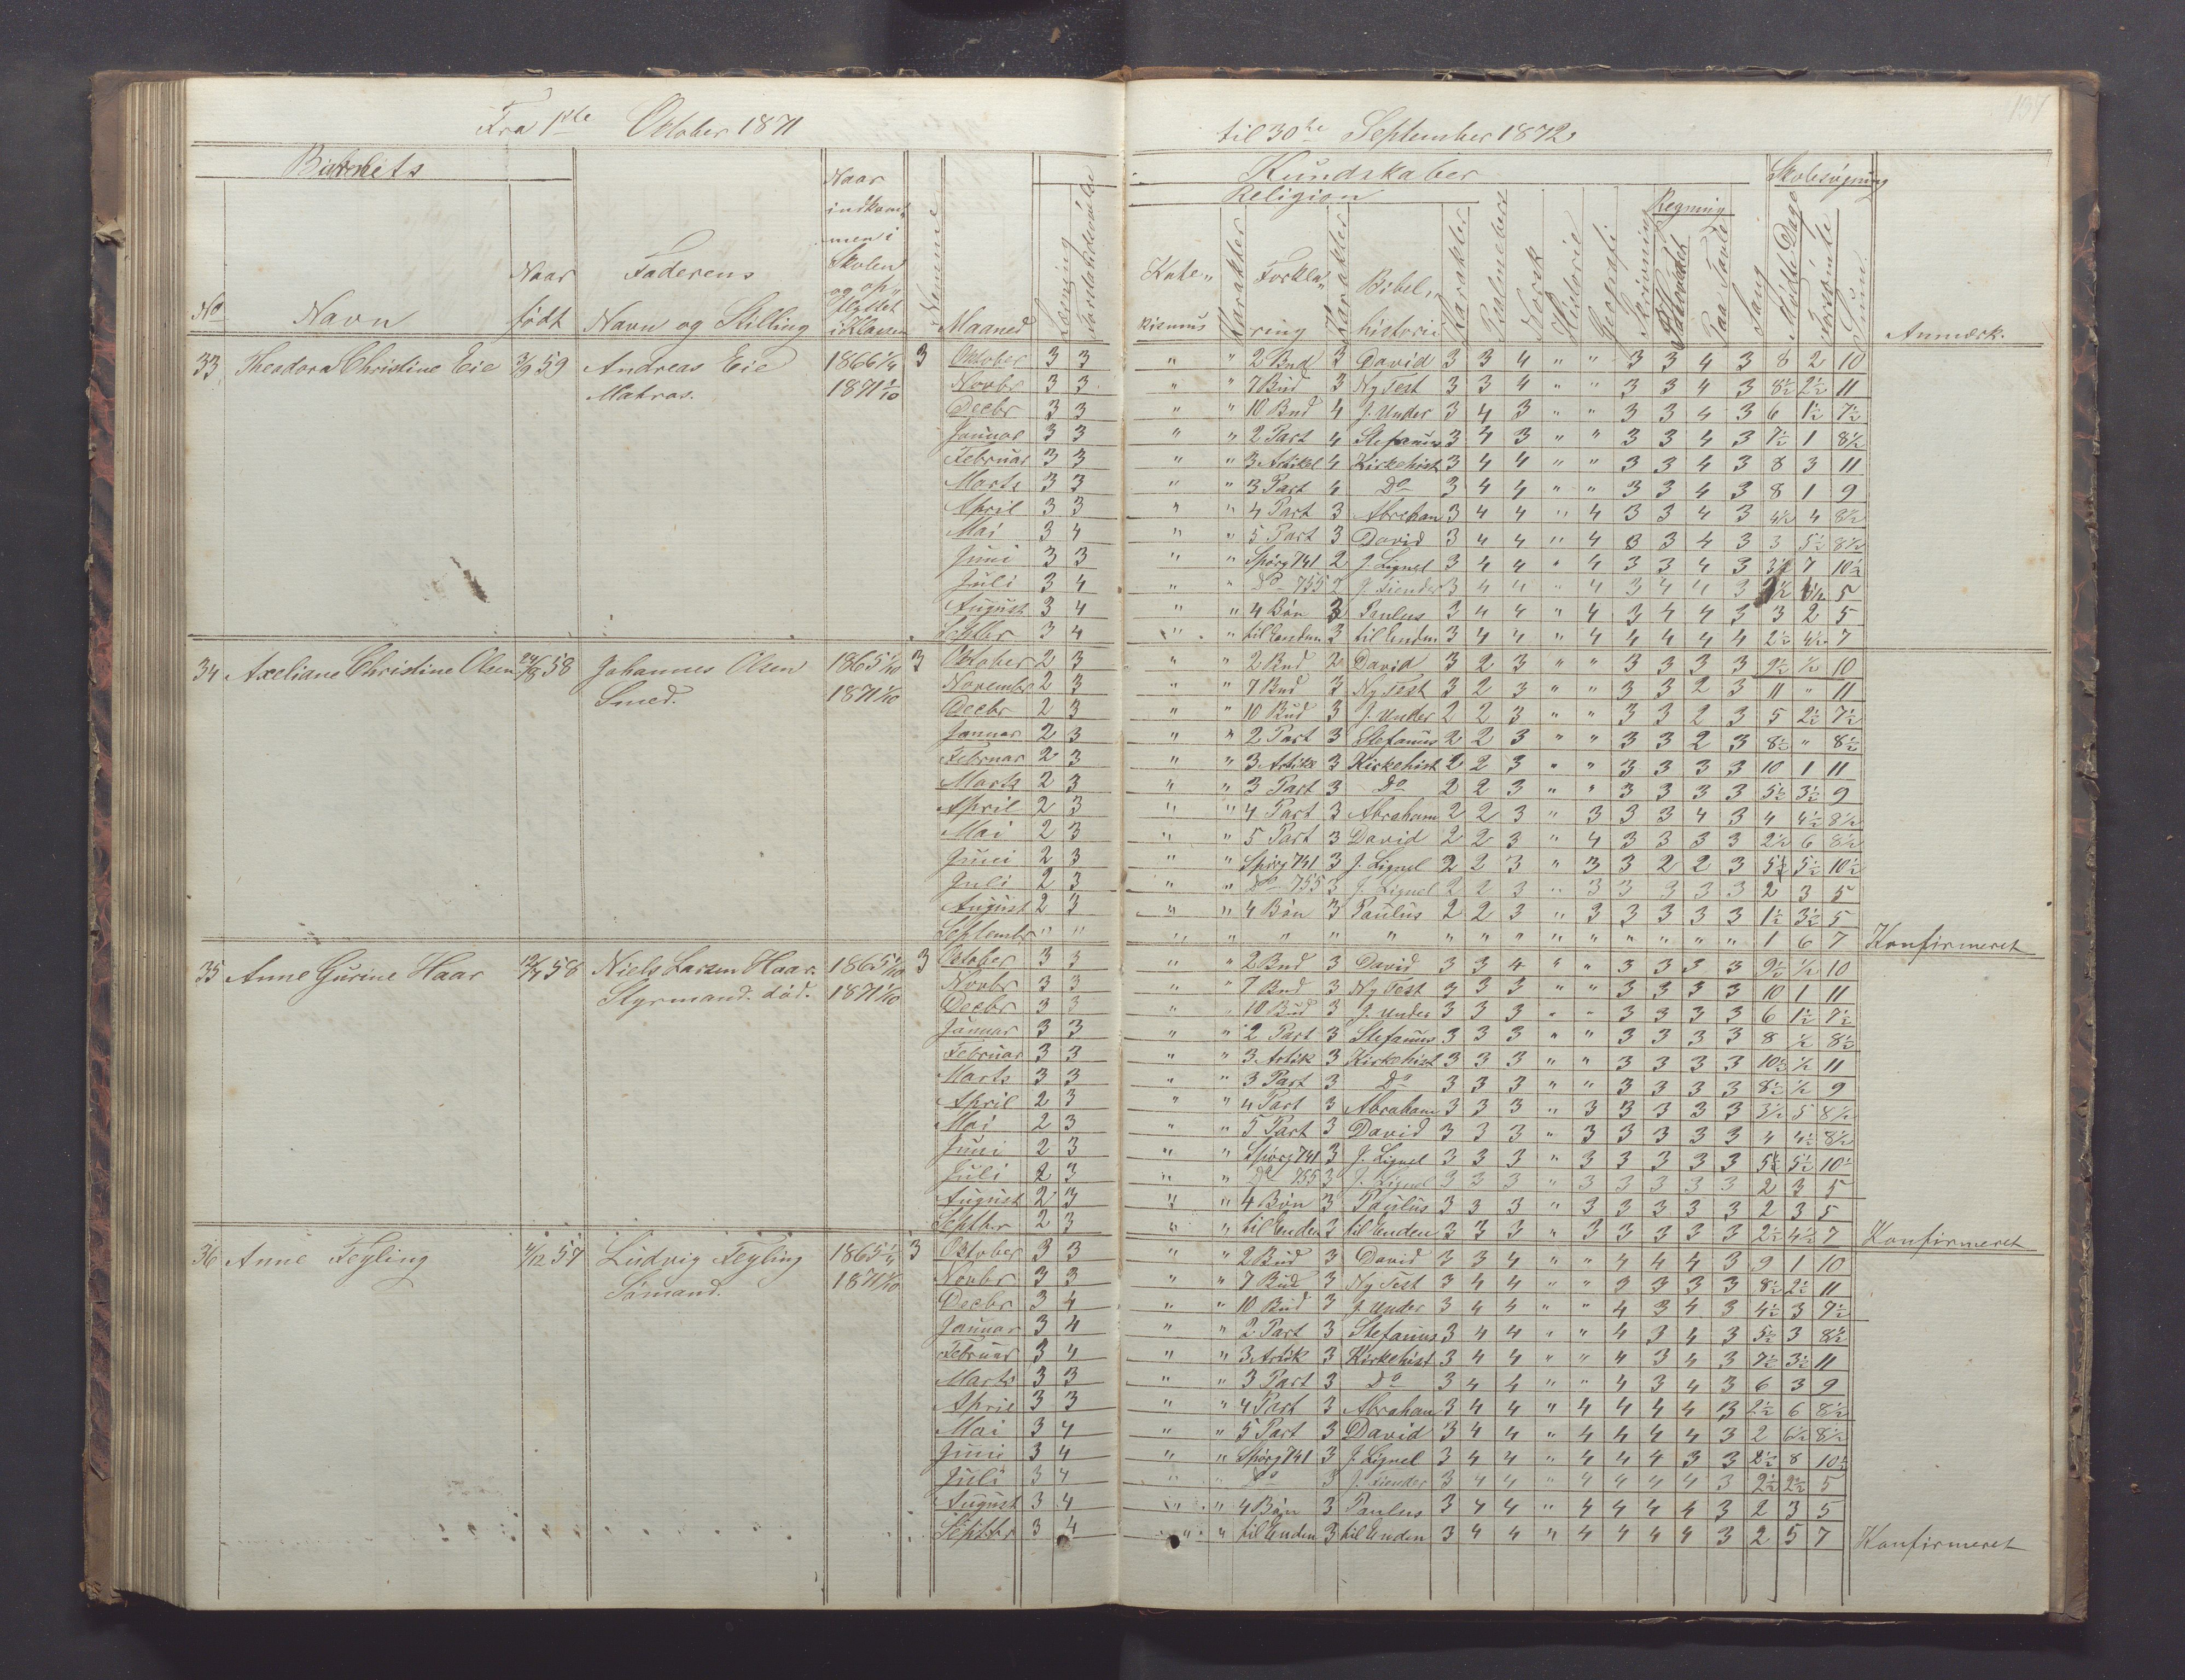 Fra 1ste Oktober 1871 til 30te September 1872
137
Barnets
Kundskaber
Skolesøgning
Religion
Regning
No Navn
Naar født
Faderens Navn og Stilling
Naar indkommen i Skolen og opflyttet i Klassen
Nummer
Maaned
Læsning
Forstandsøvelse
Katekismus
Karakter
Forklaring
Karakter
Bibelhistorie
Karakter
Psalmebog
Norsk
Historie
Geografi
Skrivning
Paa Tavle
Sang
Mødte Dage
Forsømte
Sum
Anmærk.
33 Theodora Christine Eie 3/9 59 Andreas Eie 1866 1/4 3
Matros. 1871 1/10
Oktober 3 3 " " 2 Bud 3 David 3 3 4 " " 3 3 4 3 8 2 10
Novbr 3 3 " " 7 Bud 3 Ny Test 3 3 4 " " 3 3 4 3 8½ 2½ 11
Decbr 3 3 " " 10 Bud 4 J. Under 3 4 3 " " 3 3 4 3 6 1½ 7½
Januar 3 3 " " 2 Part 4 Stefanus 3 4 3 " " 3 3 4 3 7½ 1 8½
Februar 3 3 " " 3 Artikel 4 Kirkehist 3 4 4 " " 3 3 4 3 8 3 11
Marts 3 3 " " 3 Part 4 Do 3 4 4 " " 3 3 4 3 8 1 9
April 3 3 " " 4 Part 3 Abreham 3 4 4 " 4 3 3 4 3 4½ 4 8½
Mai 3 4 " " 5 Part 3 David 3 4 4 " 4 3 3 4 3 3 5½ 8½
Juni 3 3 " " Spørg 741 2 J. Lignel 3 4 4 " 4 3 3 4 3 3½ 7 10½
Juli 3 4 " " Do 755 2 J. Fiender 3 4 4 " 4 3 4 4 3 5
August 3 4 " " 4 Bøn 3 Paulus 3 4 4 " 4 3 4 4 3 3 2 5
Septbr 3 4 " " til Enden 3 til Enden 3 4 4 " 4 4 4 4 4 2½ 4½ 7
34 Axeliane Christine Olsen 24/8 58 Johannes Olsen 1865 1/10 3
Smed. 1871 1/10
Oktober 2 3 " " 2 Bud 2 David 3 2 3 " " 3 3 3 3 9½ ½ 10
Novembr 2 3 " " 7 Bud 3 Ny Test 3 2 3 " " 3 3 2 3 11 " 11
Decbr 2 3 " " 10 Bud 3 J. Under 2 2 3 " " 3 3 2 3 5 2½ 7½
Januar 2 3 " " 2 Part 3 Stefanus 2 2 3 " " 3 3 2 3 8½ " 8½
Februar 2 3 " " 3 Artike 3 Kirkehist 2 2 3 " " 3 3 3 3 10 1 11
Marts 2 3 " " 3 Part 3 Do 2 2 3 " " 3 3 3 3 5½ 3½ 9
April 2 3 " " 4 Part 3 Abraham 2 2 3 " 3 3 3 4 3 4 4½ 8½
Mai 2 3 " " 5 Part 3 David 2 2 3 " 4 3 3 3 3 2½ 6 8½
Juni 2 3 " " Spørg 741 3 J. Lignel 2 2 3 " 3 3 2 2 3 5 5½ 10½
Juli 2 3 " " Do 755 3 J. Lignel 2 2 3 " 3 3 3 3 3 2 3 5
August 2 3 " " 4 Bøn 3 Paulus 2 2 3 " 3 3 3 3 3 1½ 3½ 5
Septembr " " " " " " " " " " " " " " " " 1 6 7 Konfirmeret
35 Anne Gurine Haar 12/7 58 Niels Larsen Haar. 1865 1/10 3
Styrmand. død. 1871 1/10
Oktober 3 3 " " 2 Bud 3 David 3 3 4 " " 3 3 3 3 9½ ½ 10
Novbr 3 3 " " 7 Bud 3 Ny Test 3 3 3 " " 3 3 3 3 10 1 11
Decbr 3 3 " " 10 Bud 3 J. Under 3 3 3 " " 3 3 3 3 6 1½ 7½
Januar 3 3 " " 2 Part 3 Stefanus 3 3 3 " " 3 3 3 3 8 ½ 8½
Februar 3 3 " " 3 Artik 3 Kirkehist 3 3 3 " " 3 3 3 3 10½ ½ 11
Marts 3 3 " " 3 Part 3 Do 3 3 3 " " 3 3 3 3 8½ ½ 9
April 2 3 " " 4 Part 3 Abraham 3 3 3 " 3 3 3 3 3 3½ 5 8½
Mai 2 3 " " 5 Part 3 David 3 3 3 " 3 3 3 3 3 4 4½ 8½
Juni 2 3 " " Spørg 741 3 J. Lignel 3 3 3 " 3 3 3 3 3 5 5½ 10½
Juli 2 3 " " Do 755 3 J. Lignel 3 3 3 " 3 3 3 3 3 2 3 5
August 2 3 " " 4 Bøn 3 Paulus 3 3 3 " 3 3 3 3 3 2 3 5
Septbr 2 3 " " til Enden 3 til Enden 3 3 3 " 3 3 3 3 3 2½ 4½ 7 Konfirmeret
36 Anne Feyling 4/12 57 Ludvig Feyling 1865 1/4 3
Sømand. 1871 1/10
Oktober 3 3 " " 2 Bud 3 David 3 3 4 " " 4 4 4 3 9 1 10
Novbr 3 3 " " 7 Bud 3 Ny Test 3 4 4 " " 3 3 3 3 8½ 2½ 11
Decbr 3 4 " " 10 Bud 3 J. Under 3 4 4 " " 4 3 4 3 4½ 3 7½
Januar 3 4 " " 2 Part 3 Stefanus 3 4 4 " " 4 3 4 3 5½ 3 8½
Februar 3 4 " " 3 Artik 3 Kirkehist 3 4 4 " " 4 3 4 3 7½ 3½ 11
Marts 3 3 " " 3 Part 3 Do 3 4 4 " " 4 3 4 3 6 3 9
April 3 3 " " 4 Part 3 Abraham 3 4 4 " 4 4 4 4 3 2½ 6 8½
Mai 3 4 " " 5 Part 3 David 3 4 4 " 4 4 4 4 3 2 6½ 8½
Juni 3 4 " " Spørg 741 3 J. Lignel 3 4 4 " 4 4 4 3 3 2½ 8 10½
Juli 3 4 " " Do 3 J. Fiender 3 4 4 " 4 4 4 4 3 2½ 2½ 5
August 3 4 " " 4 Bøn 3 Paulus 3 4 4 " 4 4 4 4 3 2 3 5
Septbr 3 4 " " til Enden 3 til Enden 3 4 4 " 4 4 4 4 3 2 5 7 Konfirmeret